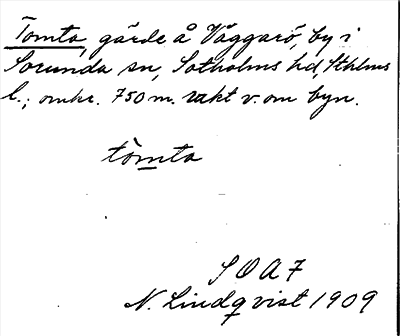 Tomta, gärde å Väggarö, by i
Sorunda sn, Sotholms hd, Sthlms
l.; omkr. 750 m. rakt v. om byn.
tòmta
SOAF
N. Lindqvist 1909